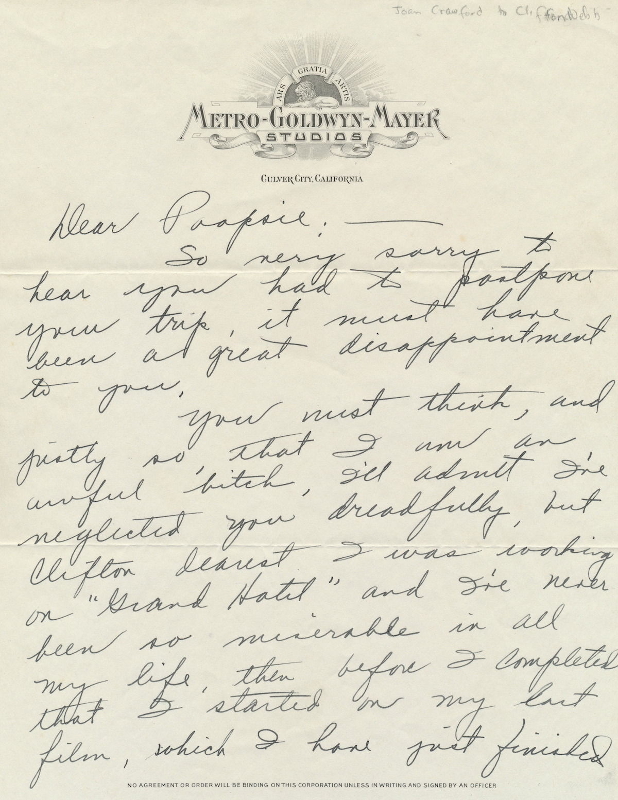 Joan Crawford to Clifton Webb
ARS GRATIA ARTIS
METRO-GOLDWYN-MAYER
STUDIOS
CULVER CITY, CALIFORNIA
Dear Poopsie: —
So very sorry to
hear you had to postpone
your trip, it must have
been a great disappointment
to you.
You must think, and
justly so, that I am an
awful bitch, I'll admit I've
neglected you dreadfully, but
Clifton dearest I was working
on "Grand Hotel" and I've never
been so miserable in all
my life, then before I completed
that I started on my last
film, which I have just finished
NO AGREEMENT OR ORDER WILL BE BINDING ON THIS CORPORATION UNLESS IN WRITING AND SIGNED BY AN OFFICER